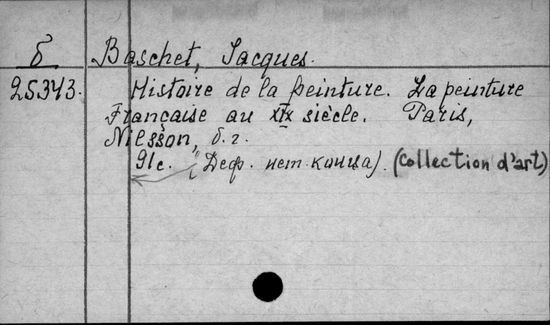 б Baschet, Jacques.
25343. Histoire de la peinture. La peinture
Française au XIX siècle. Paris,
Nilsson, б. г.
91с. (Деф. нет конца). (Collection d'art)